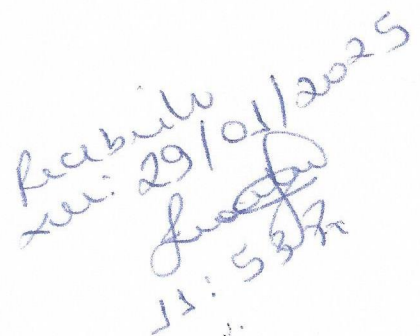 Recebido
em: 29/01/2025
11:53h